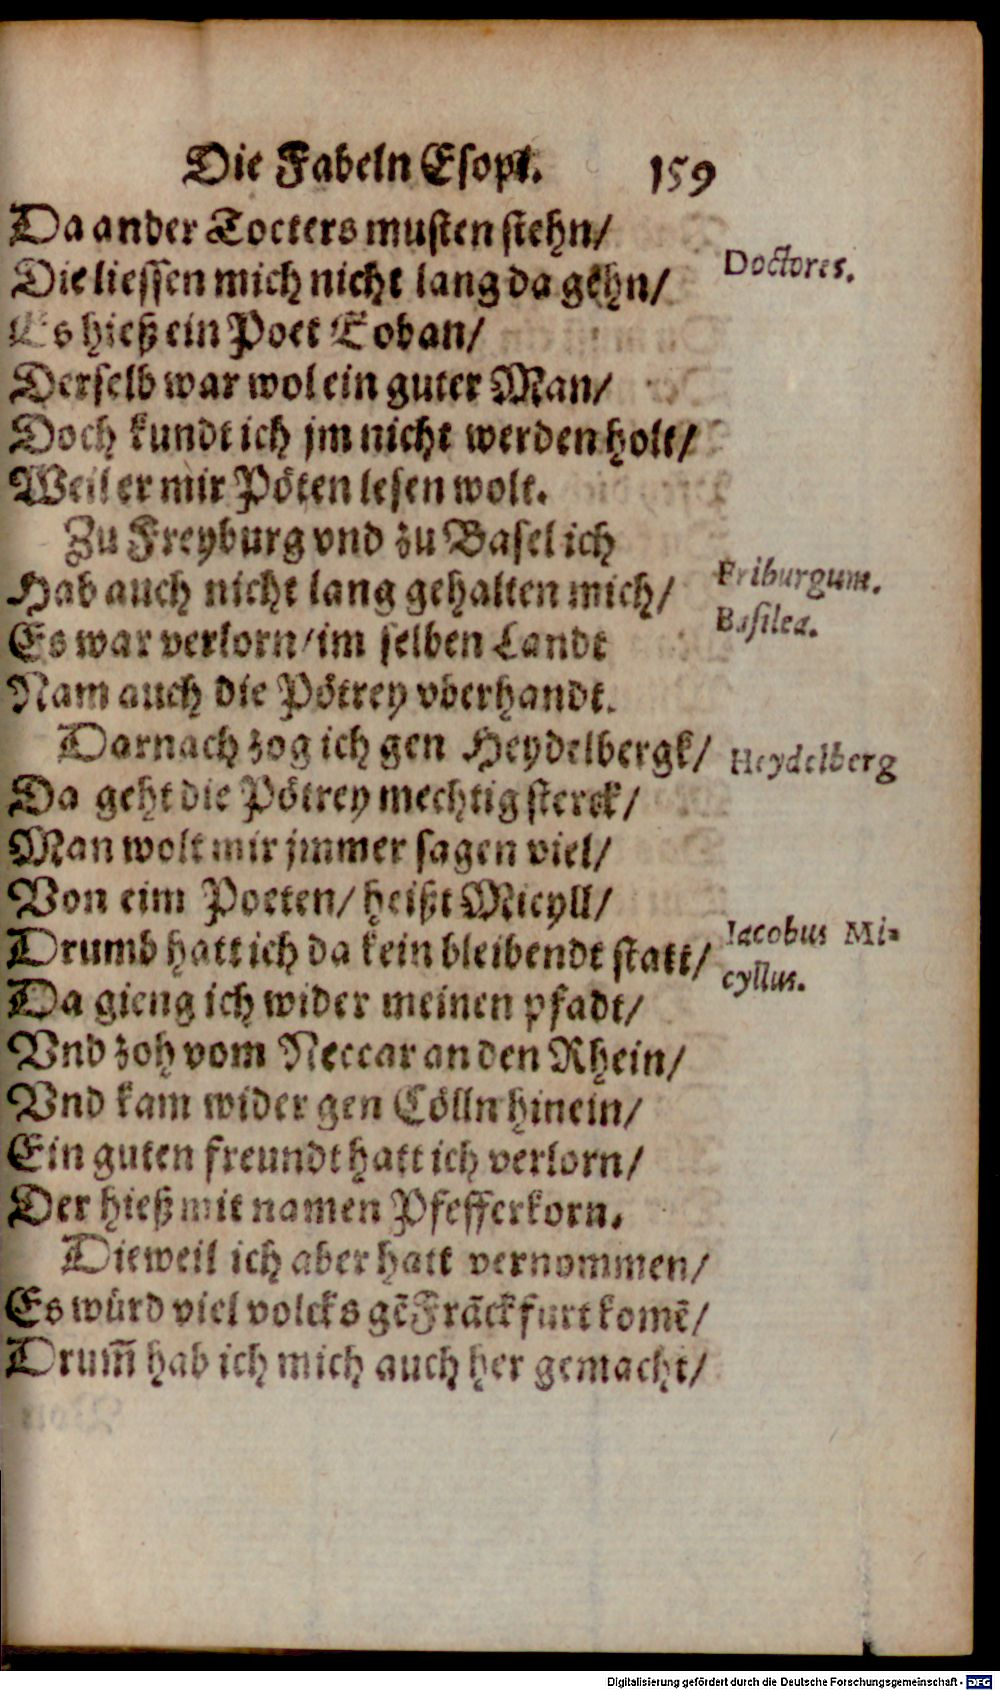 Die Fabeln Esopi. 159
Da ander Tockers musten stehn/
Doctores.
Die liessen mich nicht lang da gehn/
Es hieß ein Poet Eoban/
Derselb war wol ein guter Man/
Doch kundt ich jm nicht werden holt/
Weil er mir Pöten lesen wolt.
Zu Freyburg vnd zu Basel ich
Friburgum.
Hab auch nicht lang gehalten mich/
Basilea.
Es war verlorn/im selben Landt
Nam auch die Pötrey vberhandt.
Darnach zog ich gen Heydelbergk/
Heydelberg
Da geht die Pötrey mechtig sterck/
Man wolt mir jmmer sagen viel/
Von eim Poeten/ heißt Micyll/
Iacobus Mi-
Drumb hatt ich da kein bleibendt statt/
cyllus.
Da gieng ich wider meinen pfadt/
Vnd zoh vom Neccar an den Rhein/
Vnd kam wider gen Cölln hinein/
Ein guten freundt hatt ich verlorn/
Der hieß mit namen Pfefferkorn.
Dieweil ich aber hatt vernommen/
Es würd viel volcks gē Frāckfurt komē/
Drum̄ hab ich mich auch her gemacht/
Digitalisierung gefördert durch die Deutsche Forschungsgemeinschaft - DFG